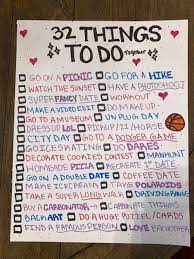 32 THINGS
TO DO together
GO ON A PICNIC GO FOR A HIKE
WATCH THE SUNSET HAVE A PHOTOSHOOT
SUPER FANCY DATE WORKOUT
MAKE A VIDEO EDIT DO MAKEUP
GO TO A MUSEUM UNPLUG DAY
DRESS UP LOL PICKUP / 21 / HORSE
CITY DAY GO TO A DODGER GAME
GO ICE SKATING DO DARES
DECORATE COOKIES CONTEST MANHUNT
HOMEMADE PIZZA RECREATE 1st DATE
GO ON A DOUBLE DATE COFFEE DATE
MAKE ICE CREAM TAKE POLAROIDS
TAKE A SUPER LONG WALK DRIVING RANGE
BUY A CARBONATOR → CARBONATE THINGS
BACK ART DO A HUGE PUZZLE / CARDS
FIND A FAMOUS PERSON LOVE EACH OTHER